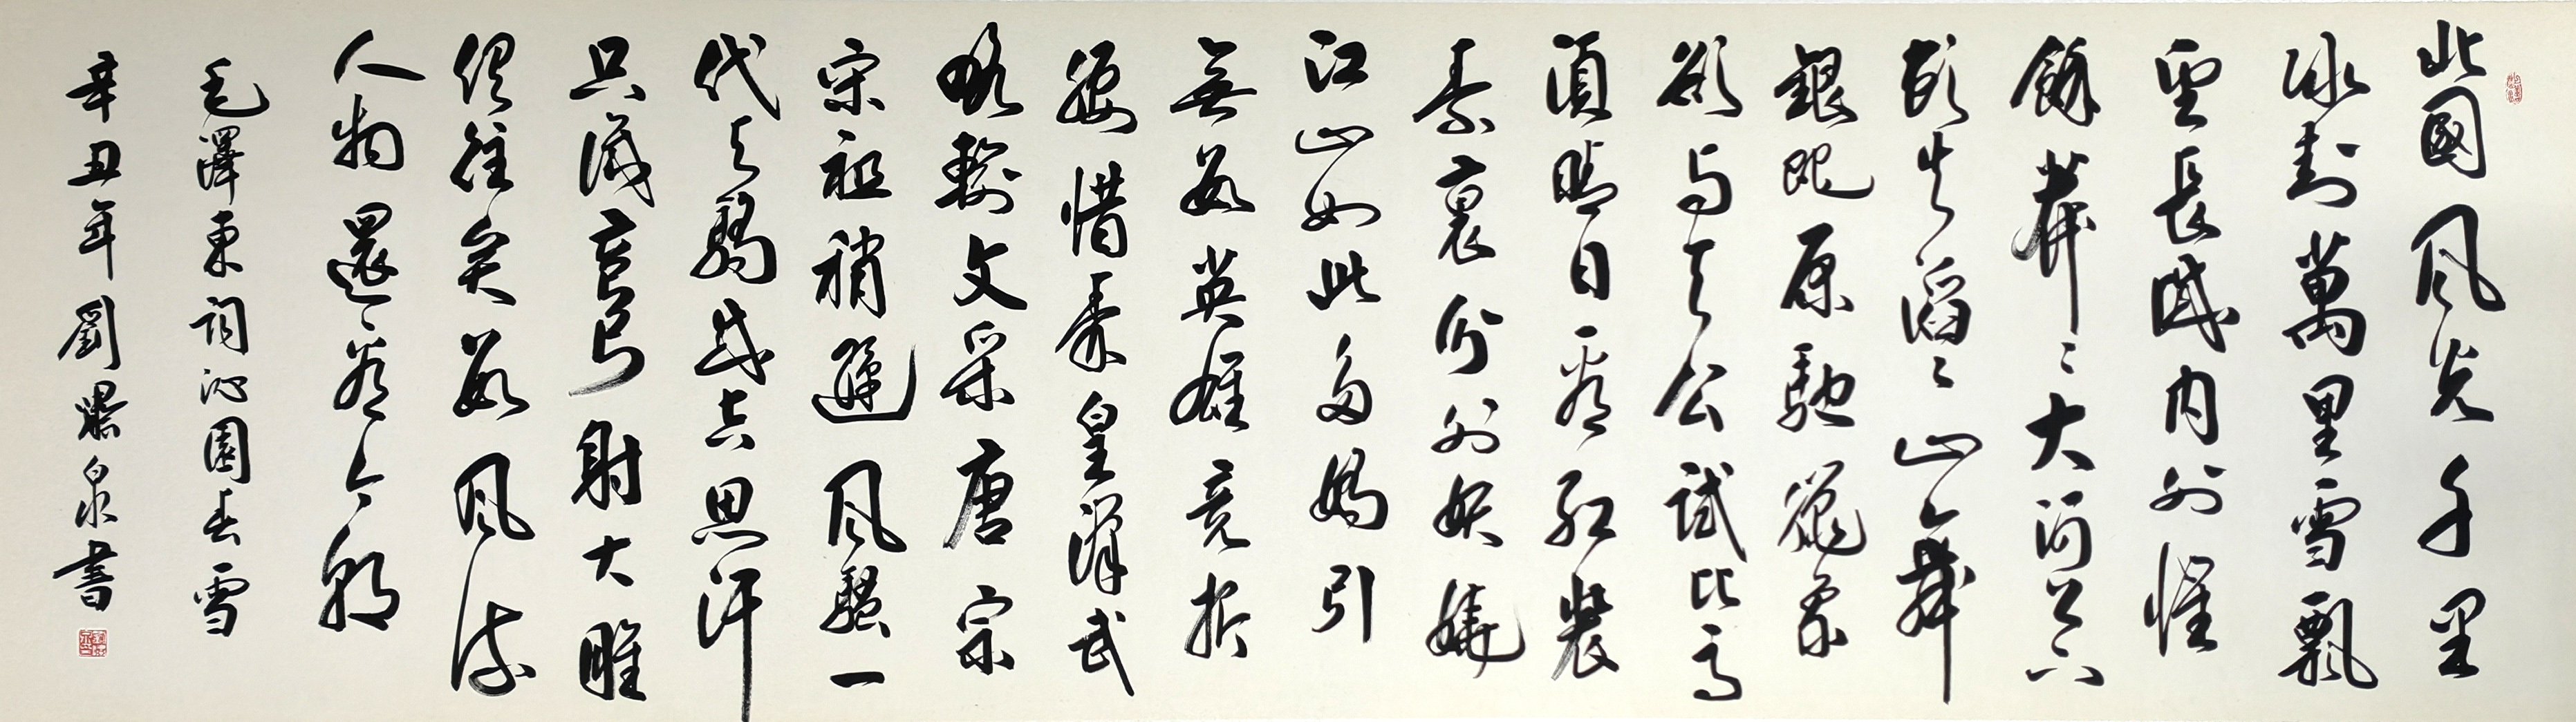 北國風光千里
冰封萬里雪飄
望長城内外惟
餘莽々大河上下
頓失滔々山舞
銀蛇原馳蠟象
欲与天公試比高
須晴日看紅裝
素裹分外妖嬈
江山如此多嬌引
無數英雄競折
腰惜秦皇漢武
略輸文采唐宗
宋祖稍遜風騷一
代天驕成吉思汗
只識彎弓射大雕
俱往矣數風流
人物還看今朝
毛澤東詞沁園春雪
辛丑年劉泉書